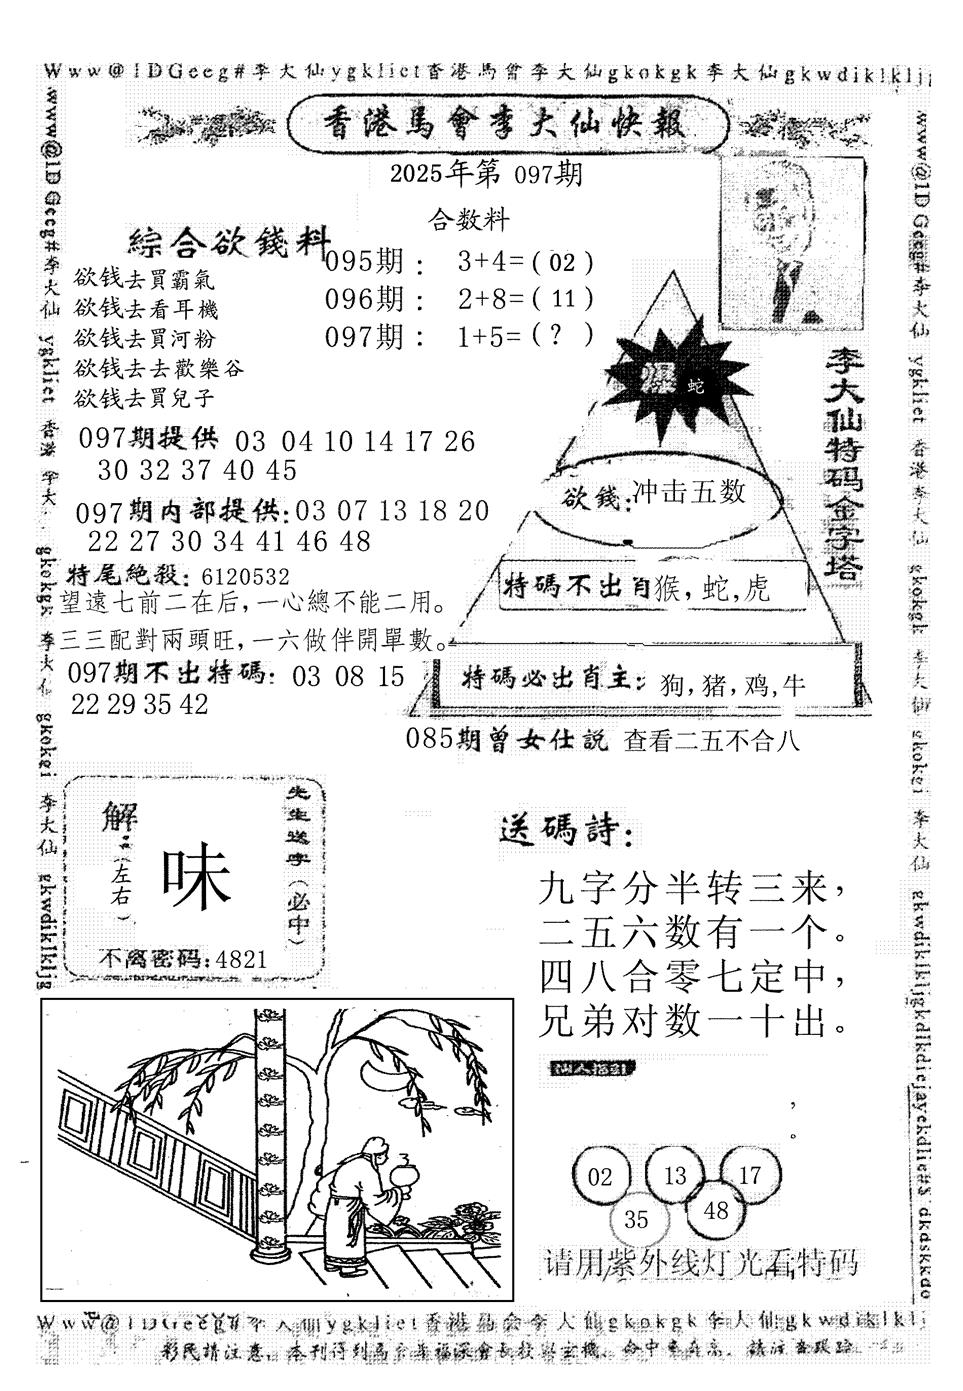 Www@1DGeeg#李大仙ygkliet香港馬會李大仙gkokgk李大仙gkwdiklkljg
香港馬會李大仙快報
2025年第 097期
合数料
綜合欲錢料
欲钱去買霸氣
欲钱去看耳機
欲钱去買河粉
欲钱去去歡樂谷
欲钱去買兒子
095期： 3+4=（02）
096期： 2+8=（11）
097期： 1+5=（？）
097期提供 03 04 10 14 17 26
30 32 37 40 45
097期内部提供:03 07 13 18 20
22 27 30 34 41 46 48
特尾絶殺: 6120532
望遠七前二在后，一心總不能二用。
三三配對兩頭旺，一六做伴開單數。
097期不出特碼: 03 08 15
22 29 35 42
李大仙特码金字塔
爆 蛇
欲錢:冲击五数
特碼不出肖猴，蛇，虎
特碼必出肖主: 狗，猪，鸡，牛
085期曾女仕説 查看二五不合八
解
（左右）
味
先生送字（必中）
不离密码:4821
送碼詩:
九字分半转三来，
二五六数有一个。
四八合零七定中，
兄弟对数一十出。
仙人指引
，
。
02 13 17
35 48
请用紫外线灯光看特码
Www@1DGeeg#李大仙ygkliet香港馬会李大仙gkokgk李大仙gkwdiklklj